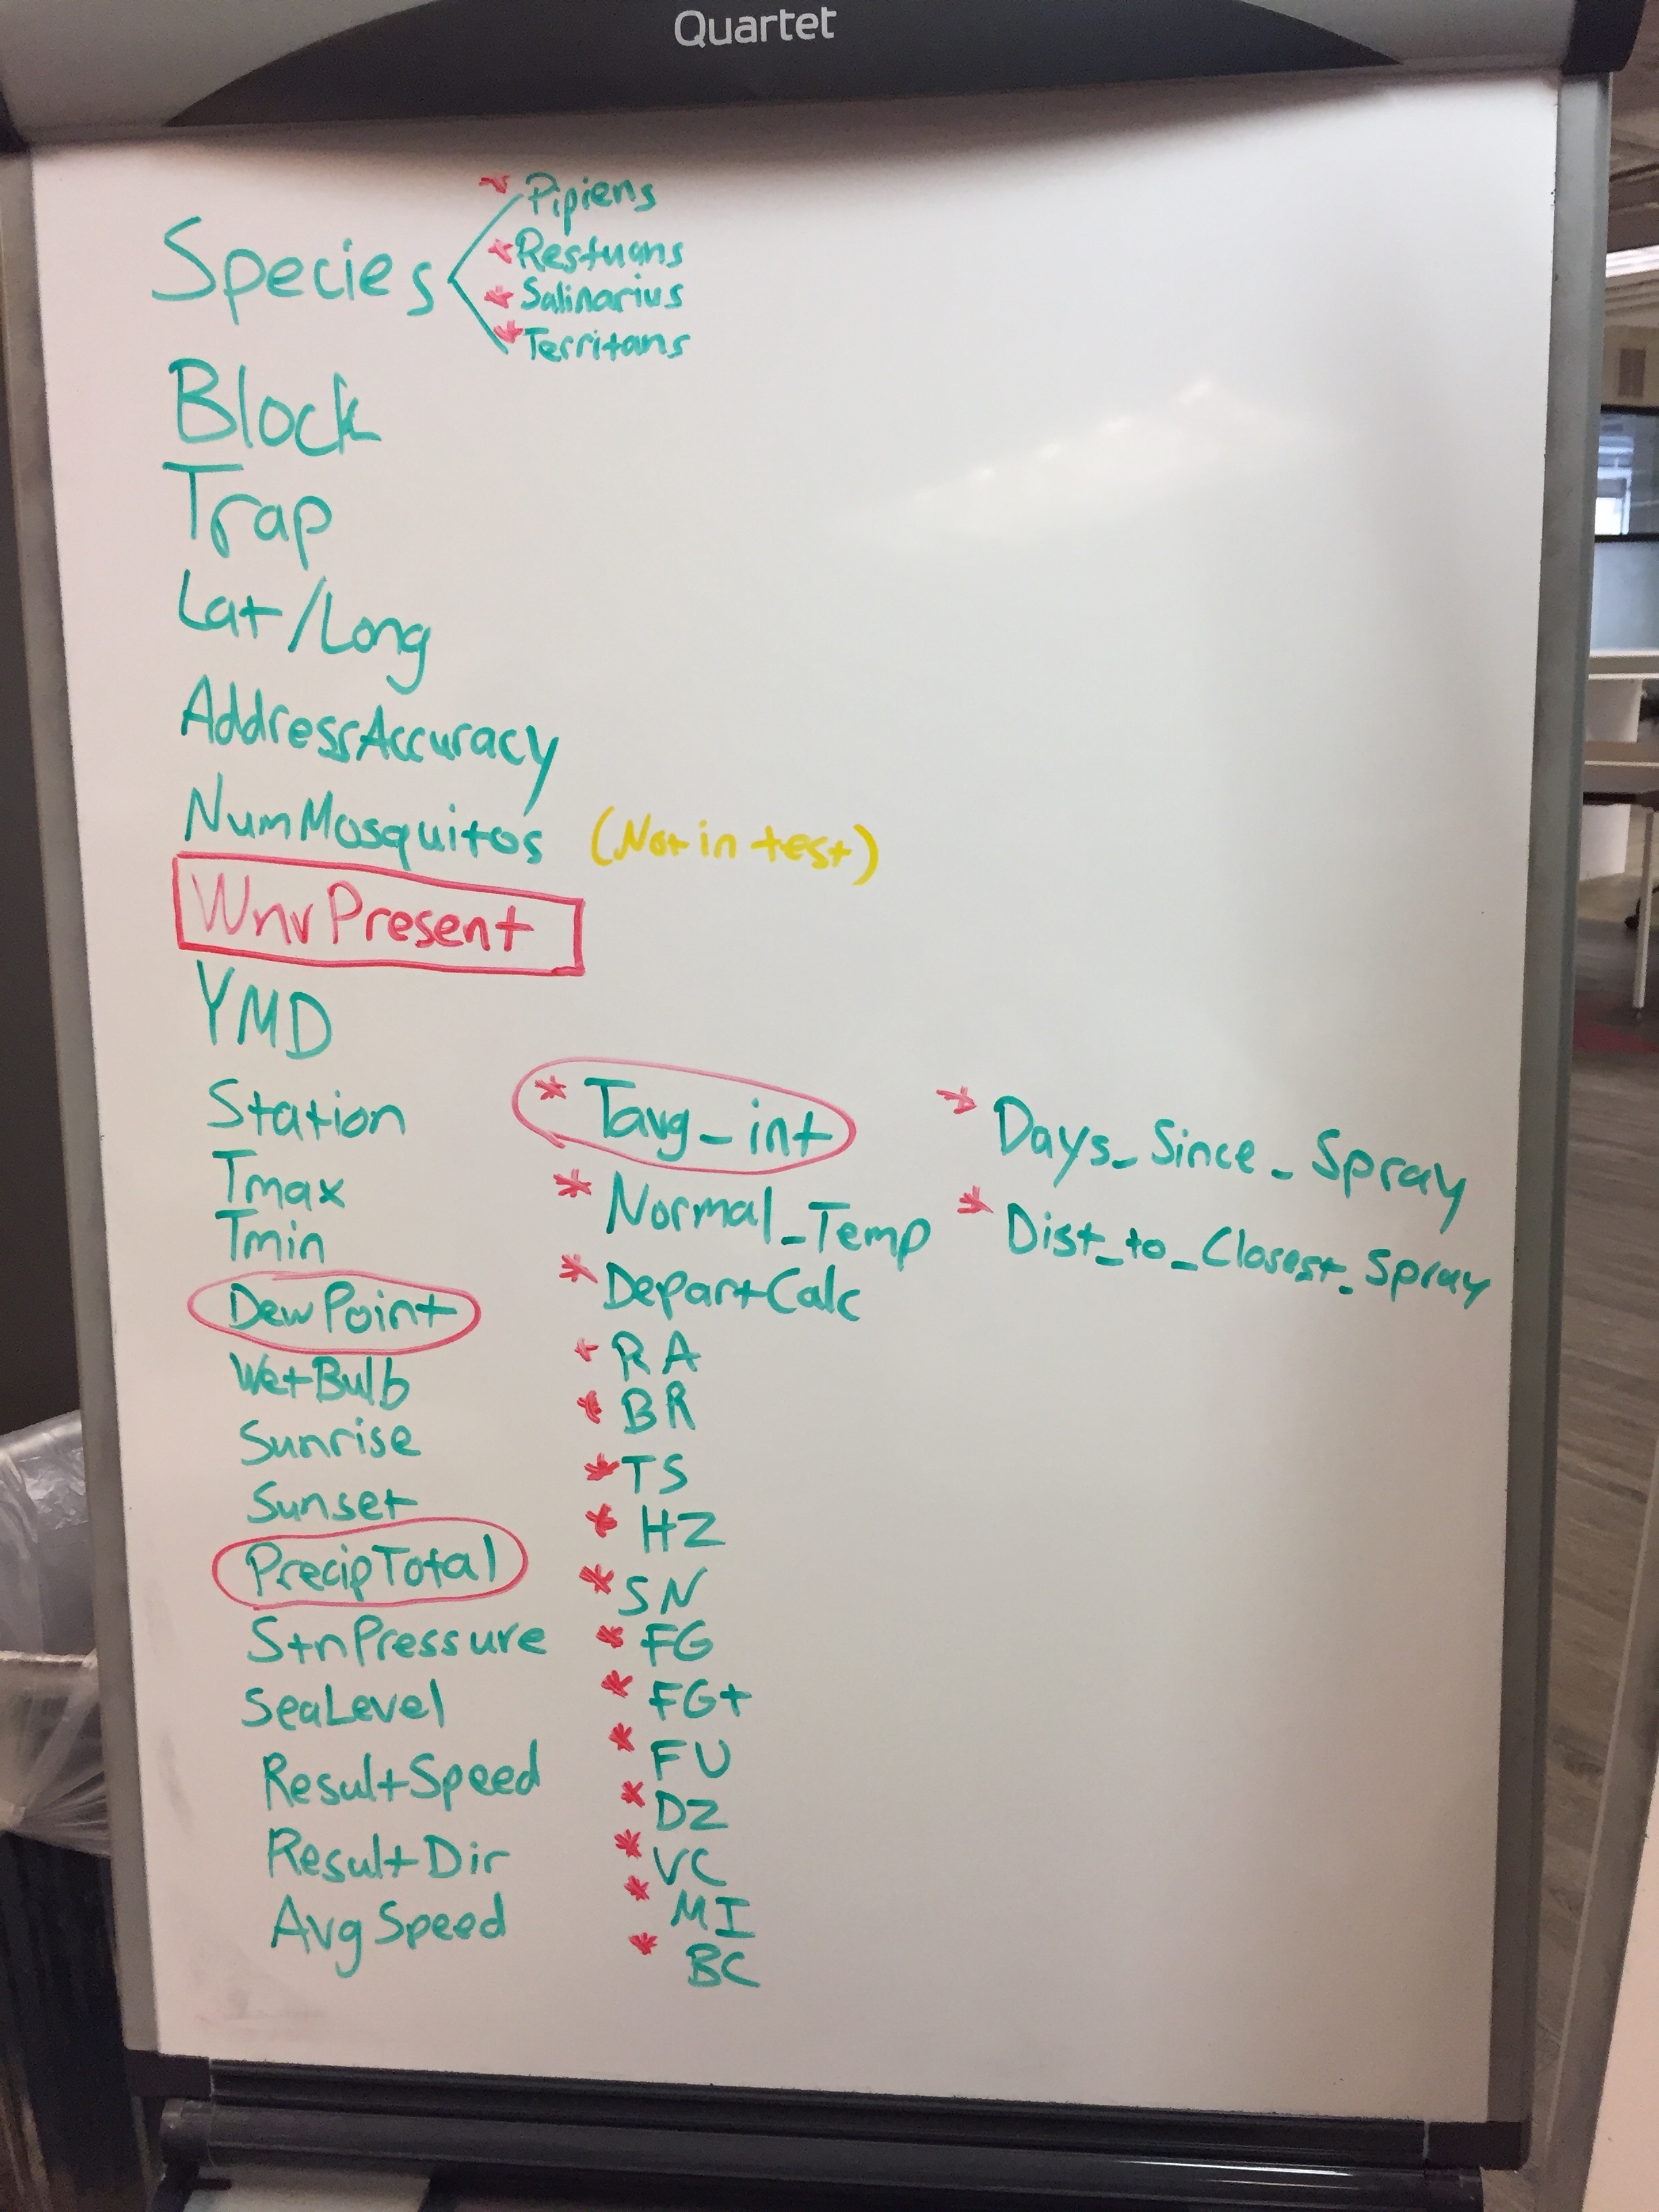 Quartet
* Pipiens
* Restuans
Species
* Salinarius
* Territans
Block
Trap
Lat/Long
AddressAccuracy
NumMosquitos (Not in test)
WnvPresent
YMD
Station
Tmax
Tmin
DewPoint
WetBulb
Sunrise
Sunset
PrecipTotal
StnPressure
SeaLevel
ResultSpeed
ResultDir
AvgSpeed
* Tavg_int
* Normal_Temp
* DepartCalc
* RA
* BR
* TS
* HZ
* SN
* FG
* FG+
* FU
* DZ
* VC
* MI
* BC
* Days_Since_Spray
* Dist_to_Closest_Spray